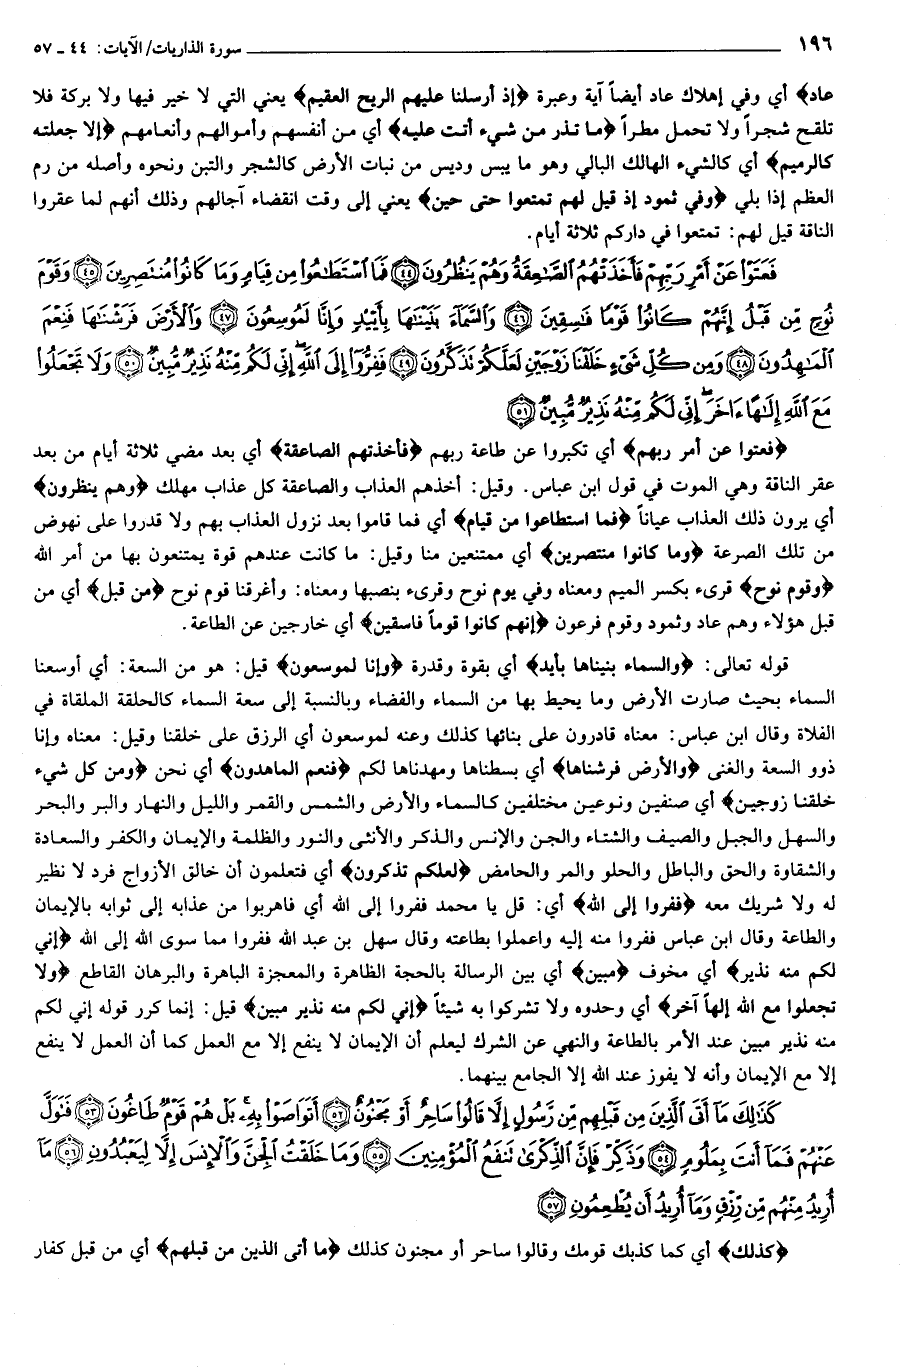 ١٩٦ سورة الذاريات/ الآيات: ٤٤ ـ ٥٧
عاد﴾ أي وفي إهلاك عاد أيضاً آية وعبرة ﴿إذ أرسلنا عليهم الريح العقيم﴾ يعني التي لا خير فيها ولا بركة فلا
تلقح شجراً ولا تحمل مطراً ﴿ما تذر من شيء أتت عليه﴾ أي من أنفسهم وأموالهم وأنعامهم ﴿إلا جعلته
كالرميم﴾ أي كالشيء الهالك البالي وهو ما يبس وديس من نبات الأرض كالشجر والتبن ونحوه وأصله من رم
العظم إذا بلي ﴿وفي ثمود إذ قيل لهم تمتعوا حتى حين﴾ يعني إلى وقت انقضاء آجالهم وذلك أنهم لما عقروا
الناقة قيل لهم: تمتعوا في داركم ثلاثة أيام.
فَعَتَوْا۟ عَنْ أَمْرِ رَبِّهِمْ فَأَخَذَتْهُمُ ٱلصَّٰعِقَةُ وَهُمْ يَنظُرُونَ ﴿٤٤﴾ فَمَا ٱسْتَطَٰعُوا۟ مِن قِيَامٍ وَمَا كَانُوا۟ مُنتَصِرِينَ ﴿٤٥﴾ وَقَوْمَ
نُوحٍ مِّن قَبْلُ إِنَّهُمْ كَانُوا۟ قَوْمًا فَٰسِقِينَ ﴿٤٦﴾ وَٱلسَّمَآءَ بَنَيْنَٰهَا بِأَيْي۟دٍ وَإِنَّا لَمُوسِعُونَ ﴿٤٧﴾ وَٱلْأَرْضَ فَرَشْنَٰهَا فَنِعْمَ
ٱلْمَٰهِدُونَ ﴿٤٨﴾ وَمِن كُلِّ شَىْءٍ خَلَقْنَا زَوْجَيْنِ لَعَلَّكُمْ تَذَكَّرُونَ ﴿٤٩﴾ فَفِرُّوٓا۟ إِلَى ٱللَّهِ إِنِّى لَكُم مِّنْهُ نَذِيرٌ مُّبِينٌ ﴿٥٠﴾ وَلَا تَجْعَلُوا۟
مَعَ ٱللَّهِ إِلَٰهًا ءَاخَرَ إِنِّى لَكُم مِّنْهُ نَذِيرٌ مُّبِينٌ ﴿٥١﴾
﴿فعتوا عن أمر ربهم﴾ أي تكبروا عن طاعة ربهم ﴿فأخذتهم الصاعقة﴾ أي بعد مضي ثلاثة أيام من بعد
عقر الناقة وهي الموت في قول ابن عباس. وقيل: أخذهم العذاب والصاعقة كل عذاب مهلك ﴿وهم ينظرون﴾
أي يرون ذلك العذاب عياناً ﴿فما استطاعوا من قيام﴾ أي فما قاموا بعد نزول العذاب بهم ولا قدروا على نهوض
من تلك الصرعة ﴿وما كانوا منتصرين﴾ أي ممتنعين منا وقيل: ما كانت عندهم قوة يمتنعون بها من أمر الله
﴿وقوم نوح﴾ قرىء بكسر الميم ومعناه وفي يوم نوح وقرىء بنصبها ومعناه: وأغرقنا قوم نوح ﴿من قبل﴾ أي من
قبل هؤلاء وهم عاد وثمود وقوم فرعون ﴿إنهم كانوا قوماً فاسقين﴾ أي خارجين عن الطاعة.
قوله تعالى: ﴿والسماء بنيناها بأيد﴾ أي بقوة وقدرة ﴿وإنا لموسعون﴾ قيل: هو من السعة: أي أوسعنا
السماء بحيث صارت الأرض وما يحيط بها من السماء والفضاء وبالنسبة إلى سعة السماء كالحلقة الملقاة في
الفلاة وقال ابن عباس: معناه قادرون على بنائها كذلك وعنه لموسعون أي الرزق على خلقنا وقيل: معناه وإنا
ذوو السعة والغنى ﴿والأرض فرشناها﴾ أي بسطناها ومهدناها لكم ﴿فنعم الماهدون﴾ أي نحن ﴿ومن كل شيء
خلقنا زوجين﴾ أي صنفين ونوعين مختلفين كالسماء والأرض والشمس والقمر والليل والنهار والبر والبحر
والسهل والجبل والصيف والشتاء والجن والإنس والذكر والأنثى والنور والظلمة والإيمان والكفر والسعادة
والشقاوة والحق والباطل والحلو والمر والحامض ﴿لعلكم تذكرون﴾ أي فتعلمون أن خالق الأزواج فرد لا نظير
له ولا شريك معه ﴿ففروا إلى الله﴾ أي: قل يا محمد ففروا إلى الله أي فاهربوا من عذابه إلى ثوابه بالإيمان
والطاعة وقال ابن عباس ففروا منه إليه واعملوا بطاعته وقال سهل بن عبد الله ففروا مما سوى الله إلى الله ﴿إني
لكم منه نذير﴾ أي مخوف ﴿مبين﴾ أي بين الرسالة بالحجة الظاهرة والمعجزة الباهرة والبرهان القاطع ﴿ولا
تجعلوا مع الله إلهاً آخر﴾ أي وحدوه ولا تشركوا به شيئاً ﴿إني لكم منه نذير مبين﴾ قيل: إنما كرر قوله إني لكم
منه نذير مبين عند الأمر بالطاعة والنهي عن الشرك ليعلم أن الإيمان لا ينفع إلا مع العمل كما أن العمل لا ينفع
إلا مع الإيمان وأنه لا يفوز عند الله إلا الجامع بينهما.
كَذَٰلِكَ مَآ أَتَى ٱلَّذِينَ مِن قَبْلِهِم مِّن رَّسُولٍ إِلَّا قَالُوا۟ سَاحِرٌ أَوْ مَجْنُونٌ ﴿٥٢﴾ أَتَوَاصَوْا۟ بِهِۦ بَلْ هُمْ قَوْمٌ طَاغُونَ ﴿٥٣﴾ فَتَوَلَّ
عَنْهُمْ فَمَآ أَنتَ بِمَلُومٍ ﴿٥٤﴾ وَذَكِّرْ فَإِنَّ ٱلذِّكْرَىٰ تَنفَعُ ٱلْمُؤْمِنِينَ ﴿٥٥﴾ وَمَا خَلَقْتُ ٱلْجِنَّ وَٱلْإِنسَ إِلَّا لِيَعْبُدُونِ ﴿٥٦﴾ مَآ
أُرِيدُ مِنْهُم مِّن رِّزْقٍ وَمَآ أُرِيدُ أَن يُطْعِمُونِ ﴿٥٧﴾
﴿كذلك﴾ أي كما كذبك قومك وقالوا ساحر أو مجنون كذلك ﴿ما أتى الذين من قبلهم﴾ أي من قبل كفار